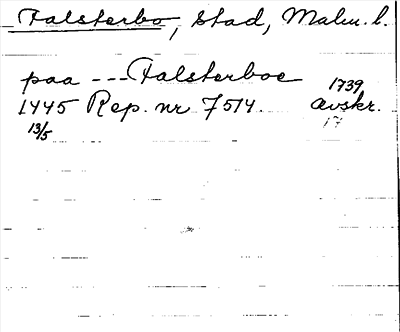 Falsterbo, stad, Malm. l.
paa --- Falsterboe
1445 Rep. nr 7514. 1739 avskr.
13/5 17